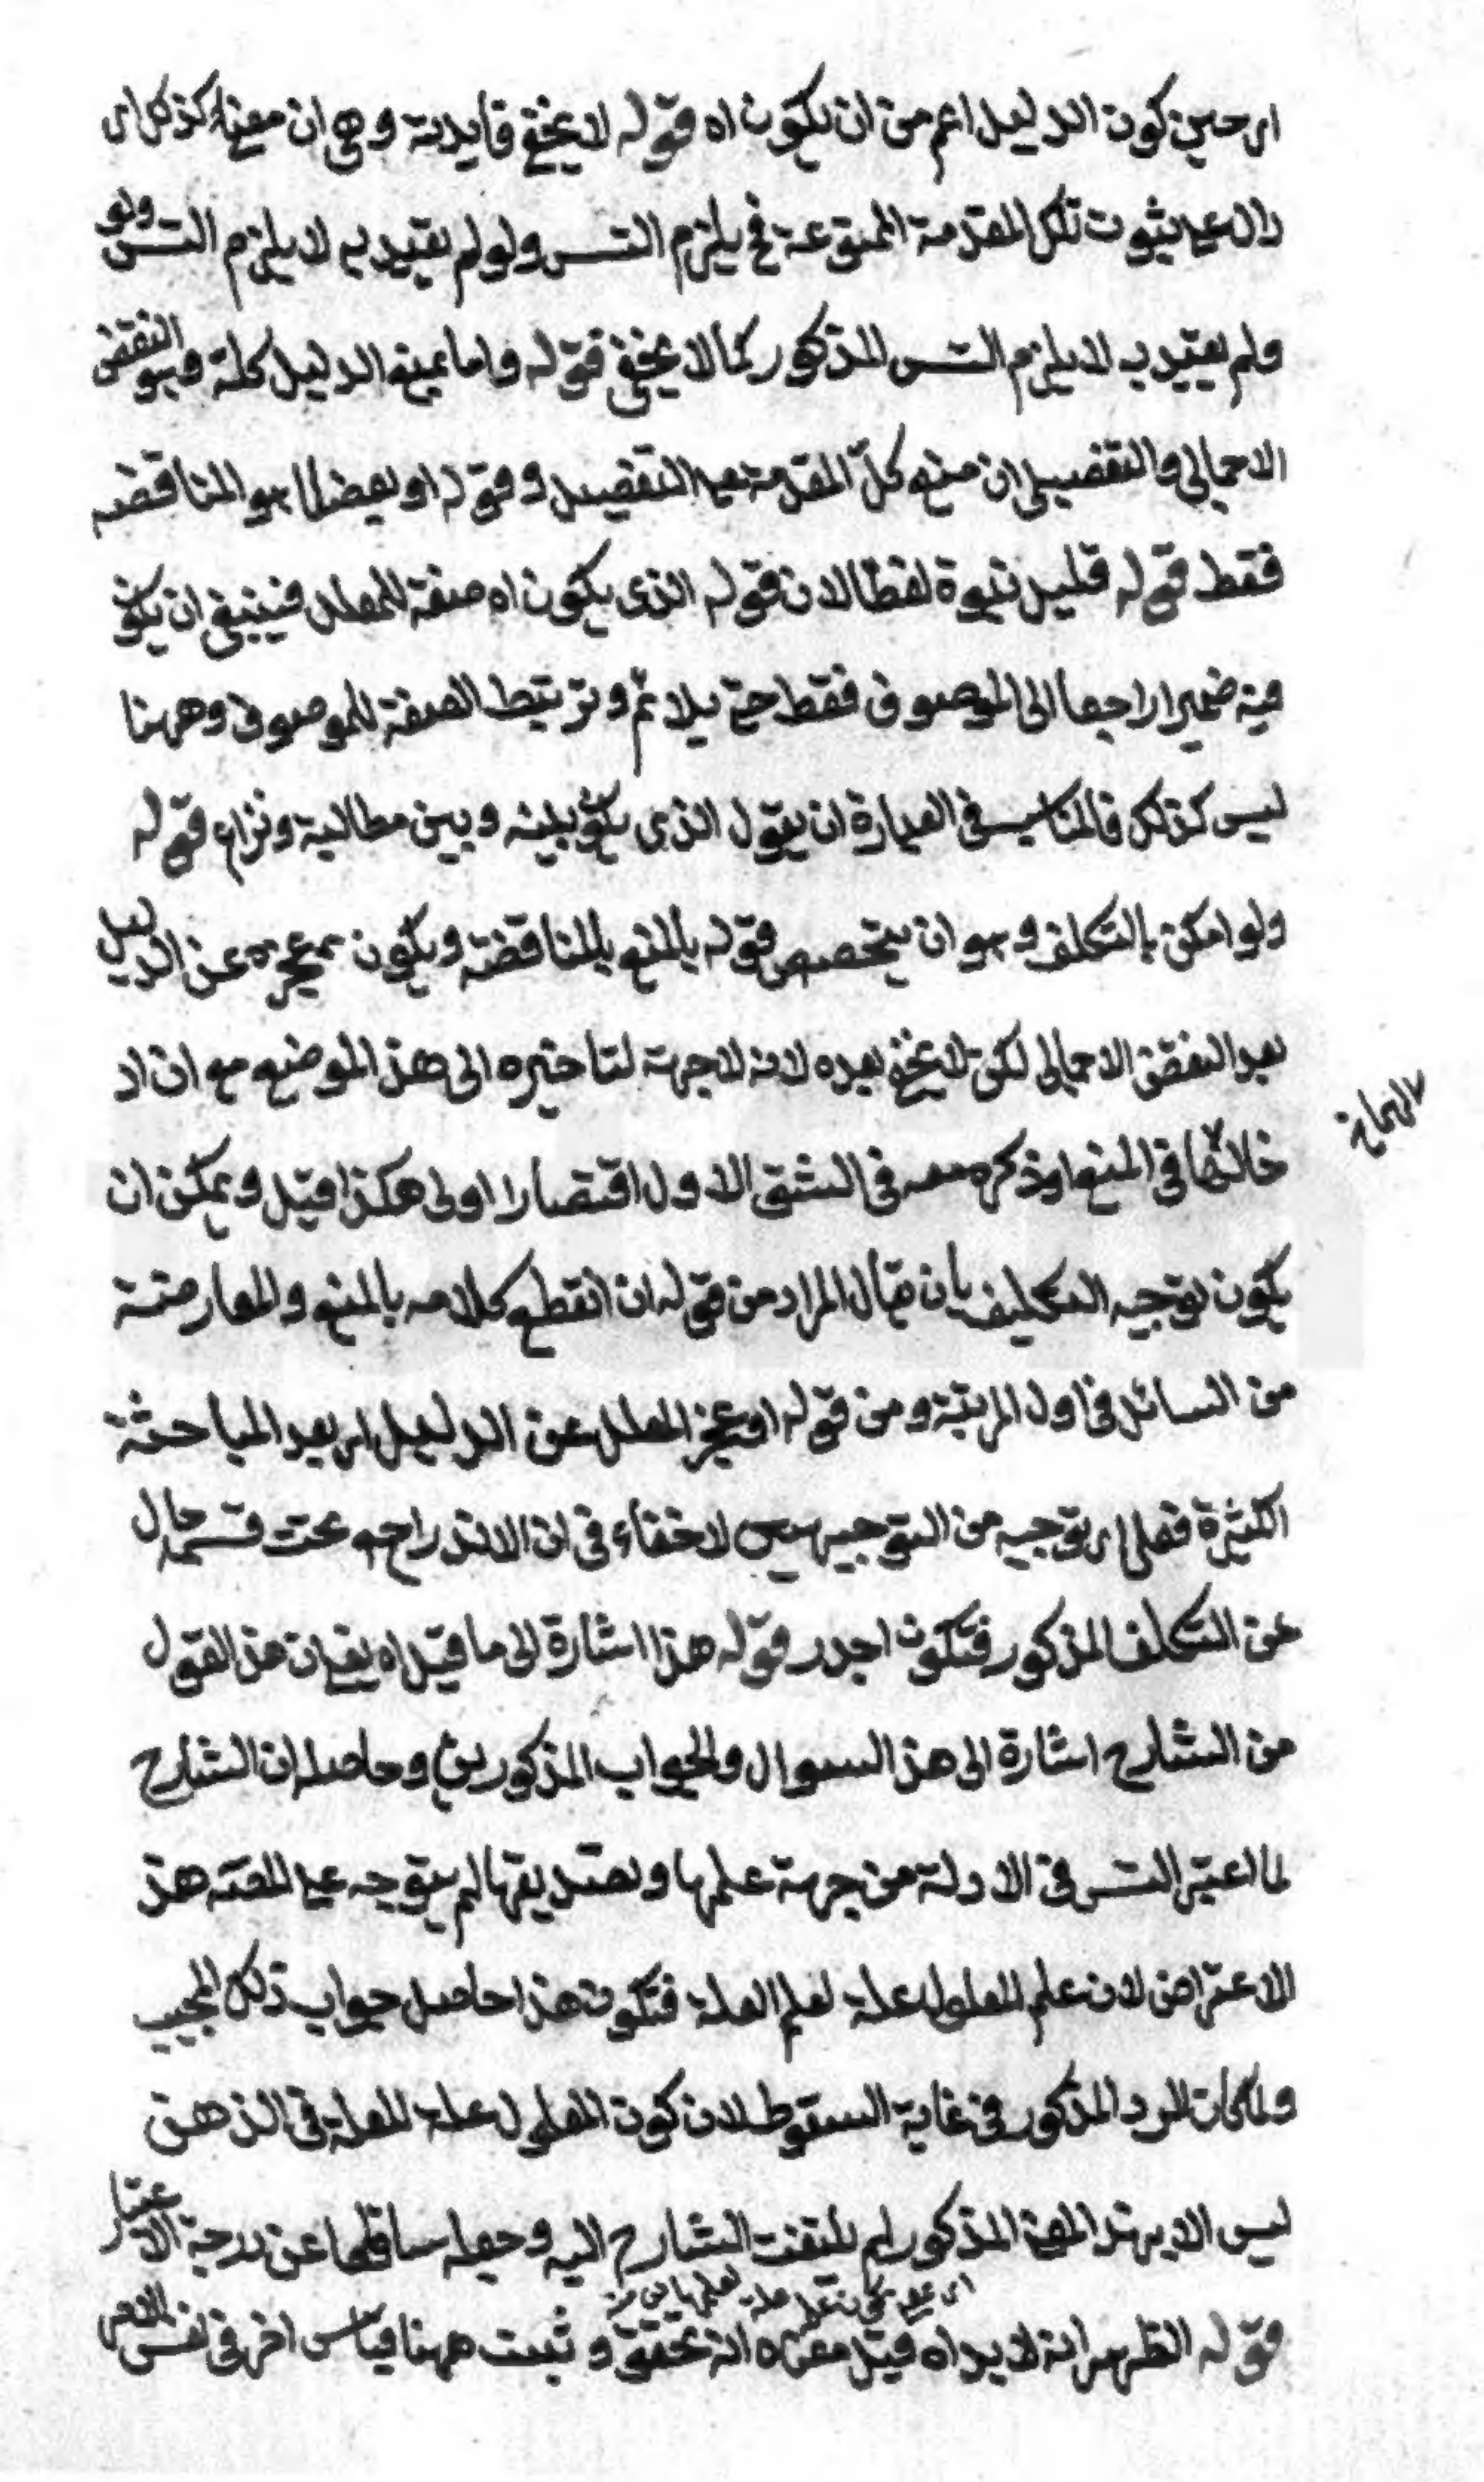 اى حين كون الدليل اعم من ان يكون اه قوله لا يخفى فايدته وهى ان معناه كذلك اى
دال على ثبوت تلك المقدمة الممنوعة فح يلزم التس ولو لم يقيد به لا يلزم التس ولو
ولم يقيد به لا يلزم التس المذكور كما لا يخفى قوله واما بمنع الدليل كله وهو النقض
الاجمالى والتفصيلى ان منع كل المقدمة على التفصيل وقوله او بعضها هو المناقضه
فقط قوله قليل نبوة لفظا لان قوله الذى يكون اه صفة للمعلل فينبغى ان يكون
فيه ضميرا راجعا الى الموصوف فقط حتى يلائم وترتبط الصفة للموصوف وههنا
ليس كذلك فالمناسب فى العبارة ان يقول الذى يكون بينه وبين مطالبه ونزاع قوله
ولو امكن بالتكلف وهو ان يخصص قوله بالمنع بالمناقضة ويكون عجزه عن الدليل
بعد النقض الاجمالى لكن لا يخفى بعده لانه لا جهة لتاخيره الى هذ الموضع مع ان اد
خالها فى المنع وذكره معه فى الشق الاول اقتصارا اولى هكذا قيل ويمكن ان
يكون توجيه التكليف بان يقال المراد من قوله ان انقطع كلامه بالمنع والمعارضة
من السائل فى اول المرتبة ومن قوله او عجز المعلل عن الدليل اى بعد المباحثة
الكثيرة فعلى اى توجيه من التوجيهين لا خفاء فى ان الاندراجه تحت قسم حال
عن التكلف المذكور فتكون اجدر قوله هذا اشارة الى ما قيل اه يعنى ان هذ القول
من الشارح اشارة الى هذ السوال والجواب المذكورين وحاصله ان الشارح
لما اعتبر التس فى الادلة من جهة علمها وتصديقها لم يتوجه عليه هذ
الاعتراض لان علم المعلول علة لعلم العلة فتكون هذا حاصل جواب ذلك المجيب
ولما كان الرد المذكور فى غاية السقوط لان كون المعلول علة للعلة فى الذهن
ليس الا بهذ المعنى المذكور لم يلتفت الشارح اليه وجعله ساقطا عن درجة الاعتبار
قوله الظهر انه لا يراد اه قيل معناه انه تحقق وثبت ههنا قياس اخر فى نفس الامر